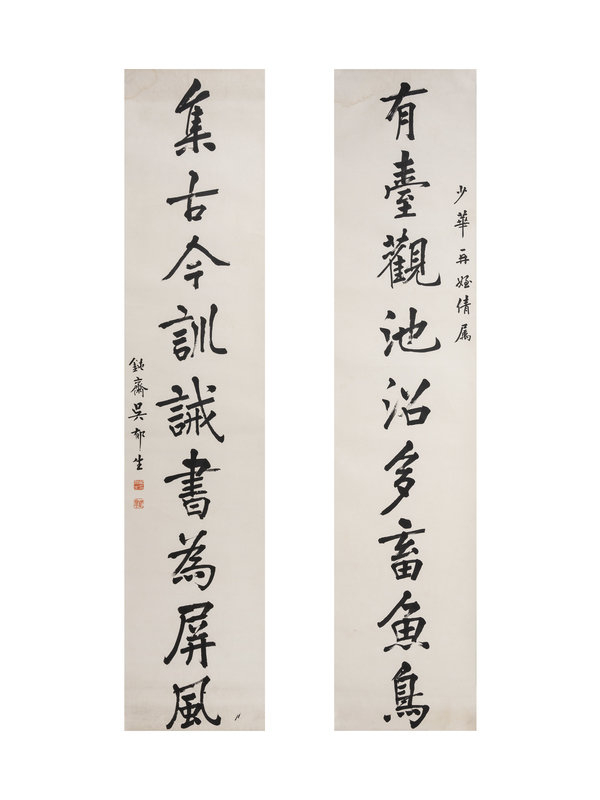 有臺觀池沼多畜魚鳥
少華再姪倩属
集古今訓誡書為屏風
鈍齋吳郁生